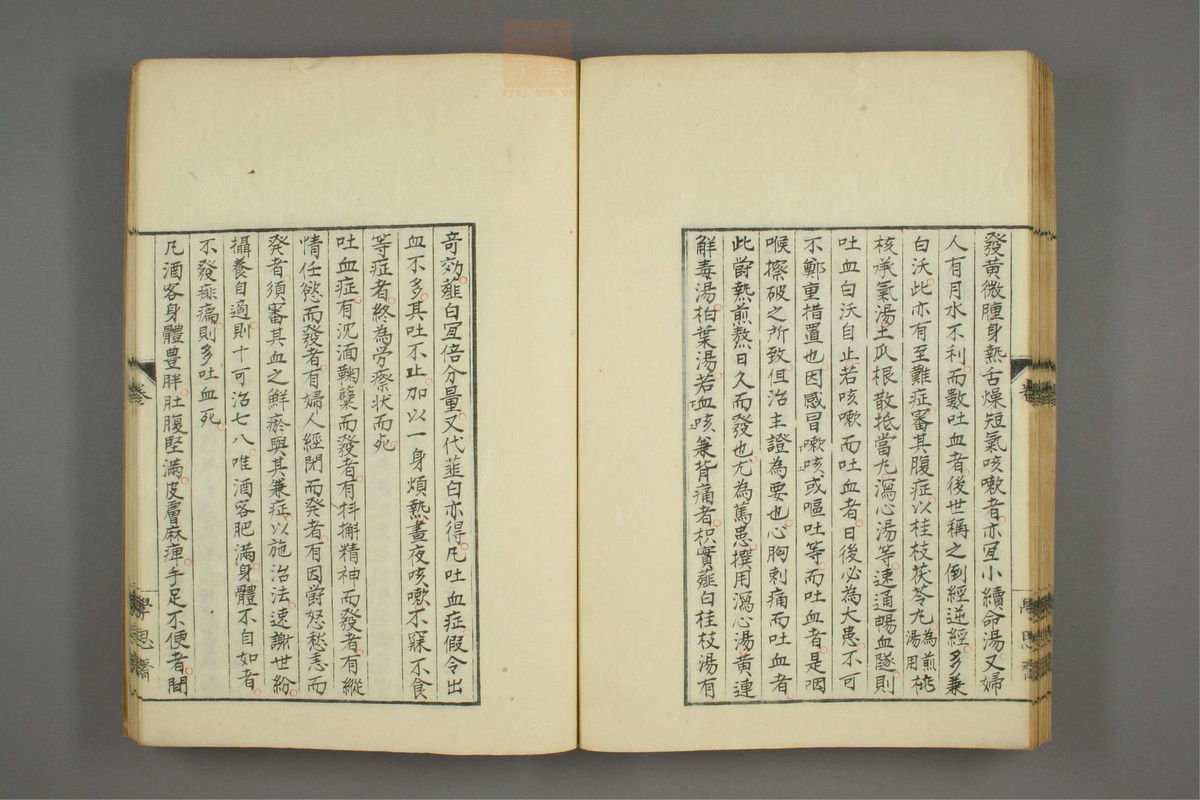 發黃微腫身熱舌燥短氣咳嗽者亦宜小續命湯又婦
人有月水不利而數吐血者後世稱之倒經逆經多兼
白沃此亦有至難症審其腹症以桂枝茯苓丸為煎湯用桃
核承氣湯土瓜根散抵當丸瀉心湯等速通暢血隧則
吐血白沃自止若咳嗽而吐血者日後必為大患不可
不鄭重措置也因感冒嗽咳或嘔吐等而吐血者是咽
喉擦破之所致但治主證為要也心胸刺痛而吐血者
此欝熱煎熬日久而發也尤為篤患撰用瀉心湯黃連
解毒湯柏葉湯若血咳兼背痛者枳實薤白桂枝湯有
奇効薤白宜倍分量又代韮白亦得凡吐血症假令出
血不多其吐不止加以一身煩熱晝夜咳嗽不寐不食
等症者終為労瘵状而死
吐血症有沉湎麴糵而發者有抖擻精神而發者有縱
情任慾而發者有婦人經閉而発者有因欝怒愁恚而
発者須審其血之鮮瘀與其兼症以施治法速謝世紛
攝養自適則十可治七八唯酒客肥滿身體不自如者
不發痱痛則多吐血死
凡酒客身體豊胖肚腹堅滿皮膚麻痺手足不便者間
卷
學思齋